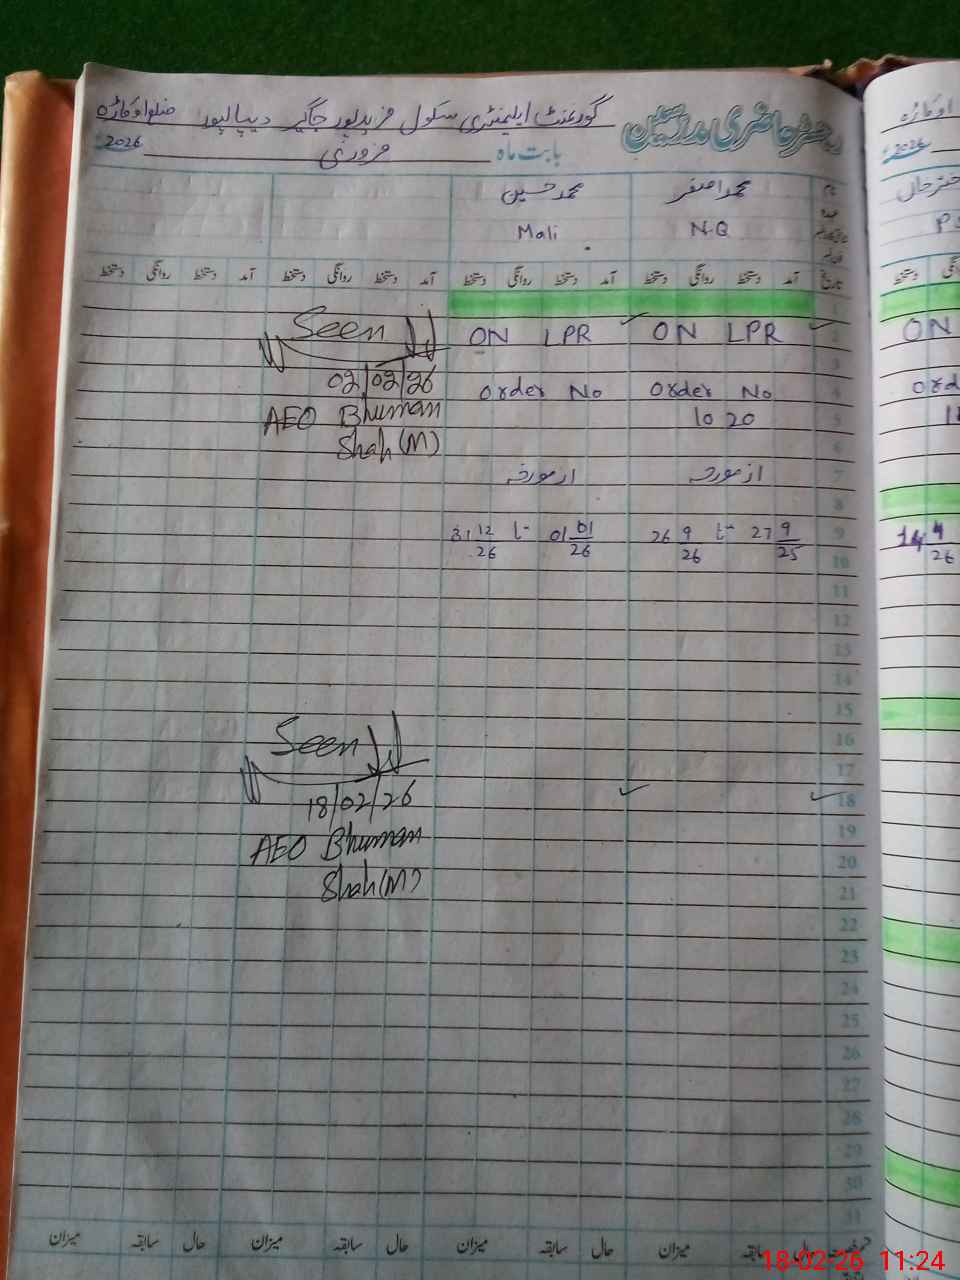 رجسٹر حاضری مدرسین گورنمنٹ ایلیمنٹری سکول فریدپور جاگیر دیپالپور ضلع اوکاڑہ
بابت ماہ فروری 2026
نام محمد اصغر محمد حسین
عہدہ N.Q Mali
تاریخ آمد دستخط روانگی دستخط آمد دستخط روانگی دستخط آمد دستخط روانگی دستخط آمد دستخط روانگی دستخط
1
2 ON LPR ON LPR Seen
3 02/02/26
4 Order No Order No AEO Bhuman
5 10 20 Shah (M)
6
7 از مورخہ از مورخہ
8
9 27 9/25 تا 26 9/26 01 01/26 تا 31 12/26
10
11
12
13
14
15
16 Seen
17
18 18/02/26
19 AEO Bhuman
20 Shah (M)
21
22
23
24
25
26
27
28
29
30
31
حال سابقہ میزان حال سابقہ میزان حال سابقہ میزان حال سابقہ میزان
اوکاڑہ
2026
اختر خان
ON
14 4/26
18-02-26 11:24